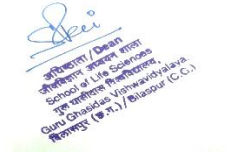 अधिष्ठाता / Dean
जीवविज्ञान अध्ययन शाला
School of Life Sciences
गुरू घासीदास विश्वविद्यालय,
Guru Ghasidas Vishwavidyalaya
बिलासपुर (छ.ग.) / Bilaspur (C.G.)